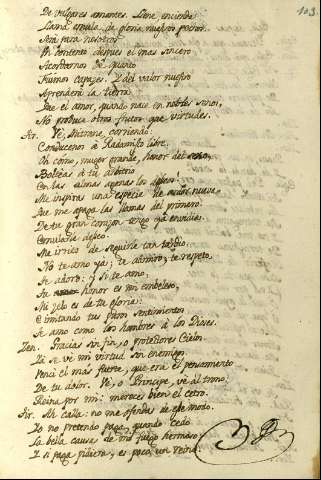 103.
De vulgares amantes. Llene, encienda
Llama emula de gloria nuestro pecho.
Será para nosotros
Un contento despues el mas sincero
Acordarnos de quanto
Fuimos capazes. Y del valor nuestro
Aprenderá la tierra
Que el amor, quando nace en nobles senos,
No produce otros frutos que virtudes.
Tir. Vé, Mitrane, corriendo:
Conducenos à Radamisto libre.
Oh como, muger grande, honor del
Bolteas à tu arbitrio
Con las almas agenas los deseos!
Me inspiras una especie de amor nueva
Que me apaga las llamas del primero.
De tu gran corazon tengo ya envidia:
Emularle deseo.
Me irrito de seguirle tan tardio.
No te amo ya; te admiro, te respeto,
Te adoro: y si te amo,
Tu honor es mi embeleso,
Mi zelo es de tu gloria:
E imitando tus puros sentimientos
Te amo como los hombres à los Dioses.
Zen. Gracias sin fin, o protectores Cielos.
Ya se vé mi virtud sin enemigo.
Vencí el mas fuerte, que era el pensamiento
De tu dolor. Vé, o Principe, vé al trono:
Reina por mi: mereces bien el cetro.
Tir. Ah calla: no me ofendas de ese modo.
Yo no pretendo paga, quando cedo
La bella causa de mi fuego hermoso:
Y si paga pidiera, es poco un reino.